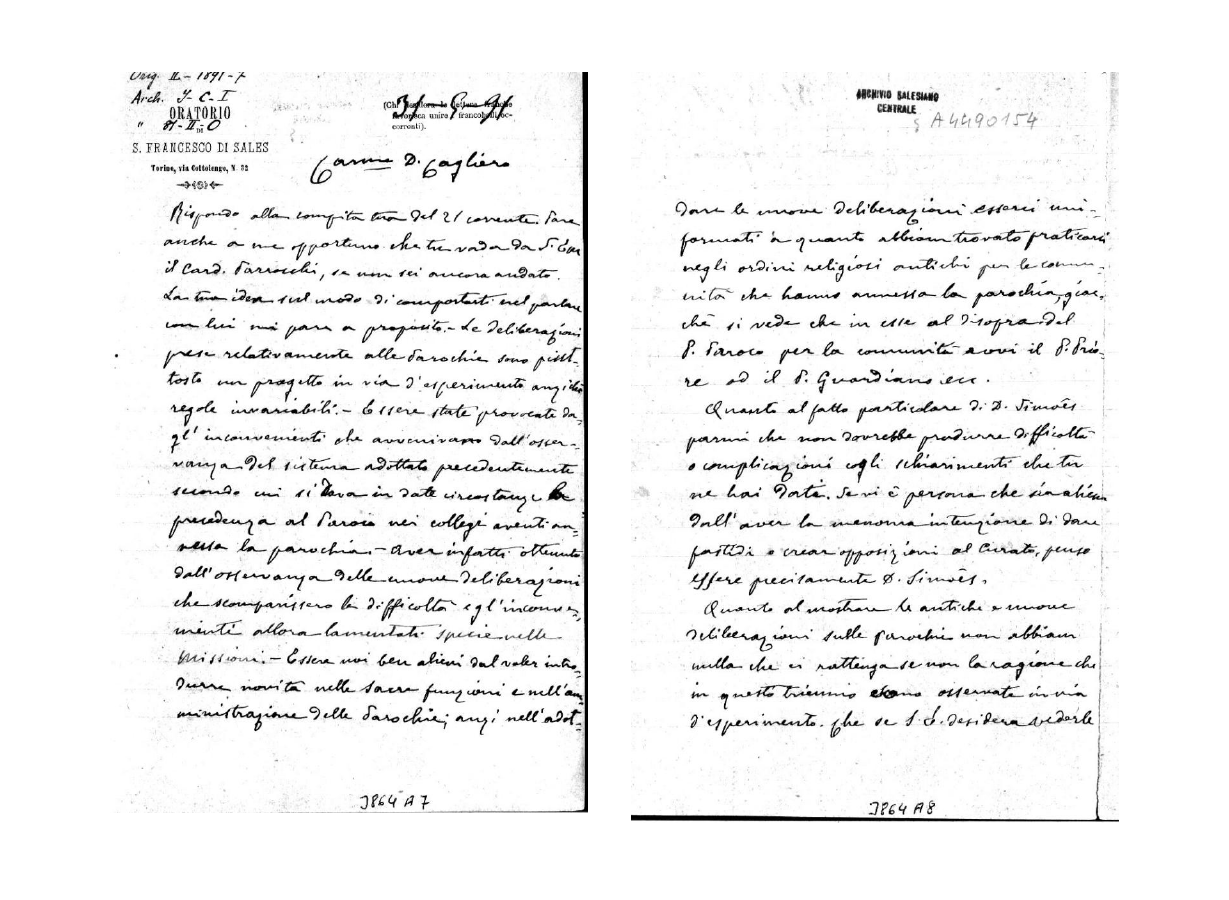 Orig. II - 1891 - 7
Arch. J - C - I
" 81 - II - O
ORATORIO
DI
S. FRANCESCO DI SALES
Torino, via Cottolengo, N. 32
(Chi desidera le lettere franche
favorisca unire i francobolli oc-
correnti).
31 - 5 - 91
Carmo D. Cagliero
Rispondo alla compita tua del 21 corrente. Pare
anche a me opportuno che tu vada da S. Em
il Card. Parocchi, se non sei ancora andato.
La tua idea sul modo di comportarti nel parlare
con lui mi pare a proposito. - Le deliberazioni
prese relativamente alle Parochie sono piut-
tosto un progetto in via d'esperimento anzichè
regole invariabili. - Essere state provocate da-
gl' inconvenienti che avvenivano dall'osser-
vanza del sistema adottato precedentemente
secondo cui si dava in date circostanze la
precedenza al Paroco nei collegi aventi an-
nessa la parochia. - Aver infatti ottenuto
dall'osservanza delle nuove deliberazioni
che scomparissero le difficoltà e gl'inconve-
nienti allora lamentati specie nelle
Missioni. - Essere noi ben alieni dal voler intro-
durre novità nelle sacre funzioni e nell'am-
ministrazione delle Parochie; anzi nell'adot-
J864 A 7
ARCHIVIO SALESIANO
CENTRALE
A4490154
dare le nuove deliberazioni esserci uni-
formati a quanto abbiam trovato praticarsi
negli ordini religiosi antichi per le comu-
nità che hanno annessa la parochia, giac-
chè si vede che in esse al disopra del
P. Paroco per la comunità avvi il P. Prio-
re od il P. Guardiano ecc.
Quanto al fatto particolare di D. Simoës
parmi che non dovrebbe produrre difficoltà
o complicazioni cogli schiarimenti che tu
ne hai dato. Se vi è persona che sia aliena
dall'aver la menoma intenzione di dare
fastidi o crear opposizioni al Curato, penso
essere precisamente D. Simoës.
Quanto al mostrare le antiche e nuove
deliberazioni sulle Parochie non abbiam
nulla che ci rattenga se non la ragione che
in questo triennio erano osservate in via
d'esperimento. Che se S. E. desidera vederle
J864 A8